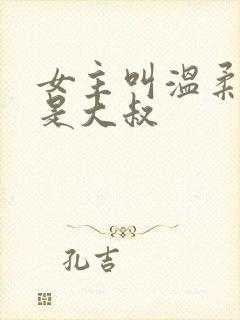 女主叫温柔
是大叔
孔吉